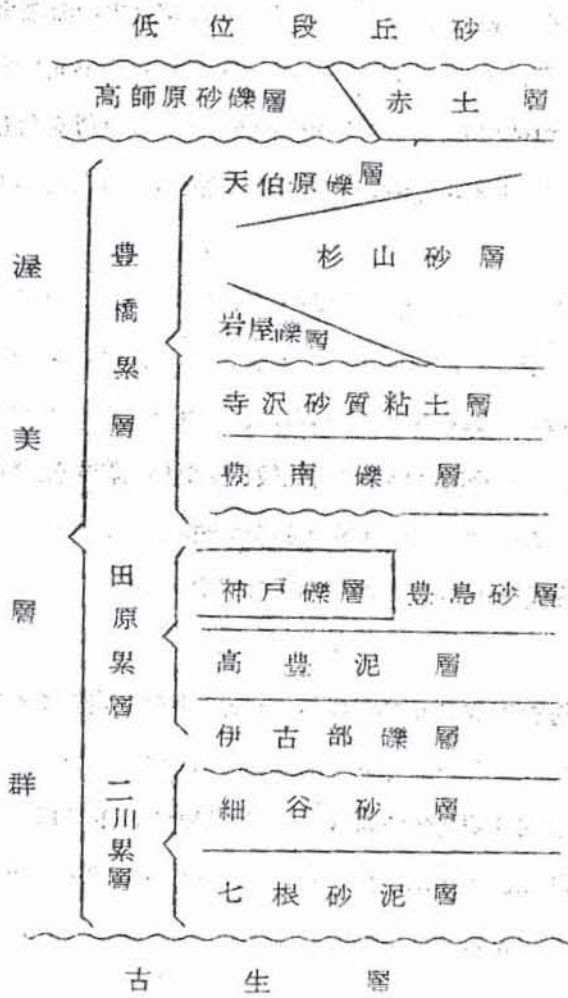 低位段丘砂
高師原砂礫層 赤土層
渥美層群
豊橋累層
天伯原礫層
杉山砂層
岩屋礫層
寺沢砂質粘土層
豊南礫層
田原累層
神戸礫層 豊島砂層
高豊泥層
伊古部礫層
二川累層
細谷砂層
七根砂泥層
古生層